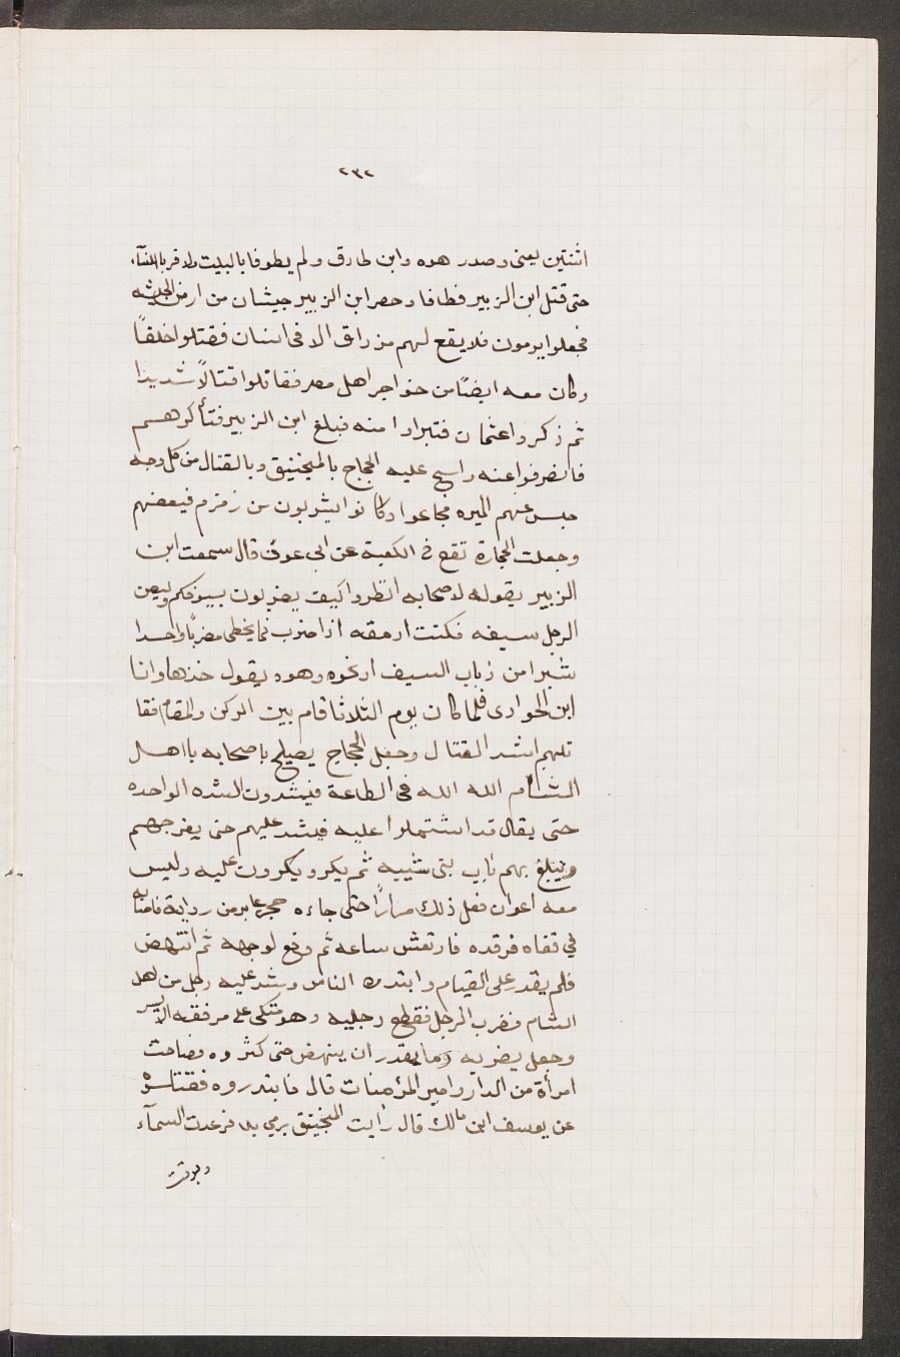 ٢٣٢
اثنتين يعنى وصدر هوه وابن طارق ولم يطوفا بالبيت ولا قربا النسآء
حتى قتل ابن الزبير فطافا وحصر ابن الزبير جيشان من ارض الحبشه
فجعلوا يرمون فلا يقع لهم مزراق الا فى انسان فقتلوا خلقاً
وكان معه ايضًا من خواجر اهل مصر فقاتلوا قتالاً شديدا
ثم ذكروا عثمان فتبراوا منه فبلغ ابن الزبير فتأكرهم
فانصرفوا عنه والح عليه الحجاج بالمنجنيق وبالقتال من كل وجه
حبس عنهم الميره فجاعوا وكانوا يشربون من زمزم فيعصمهم
وجعلت الحجارة تقع فى الكعبة عن ابى عون قال سمعت ابن
الزبير يقوله لاصحابه انظروا كيف يضربون بسيوفكم وليصن
الرجل سيفه فكنت ارمقه اذا ضرب فما يخطى مضربًا واحدا
شبرا من ذباب السيف او نحوه وهوه يقول خذها وانا
ابن الحوارى فلما كان يوم الثلاثا قام بين الركن والمقام فقا
تلهم اشد القتال وجعل الحجاج يصيح باصحابه يا اهل
الشام الله الله فى الطاعة فيشدون الشده الواحده
حتى يقال قد اشتملوا عليه فيشد عليهم حتى يفرجهم
ويبلغ بهم باب بنى شيبه ثم يكر ويكرون عليه وليس
معه اعوان فعل ذلك مرارًا حتى جاءه حجر عابر من روايه فاصابه
في قفاه فرقده فارتعش ساعه ثم وقع لوجهه ثم انتهض
فلم يقدر على القيام وابتدره الناس وشد عليه رجل من اهل
الشام فضرب الرجل فقطع رجليه وهو متكى على مرفقه الايسر
وجعل يضربه وما يقدر ان ينهض حتى كثروه وصاحت
امرأة من الدار وامير المؤمنات قال فابتدروه فقتلوه
عن يوسف ابن مالك قال رأيت المنجنيق يرمي به فرعدت السمآء
وبرقت